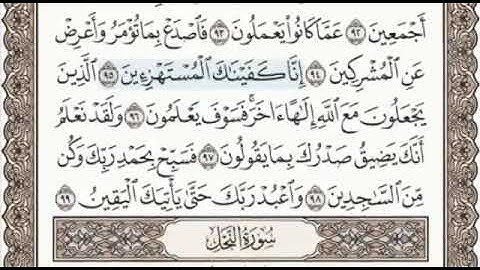 أَجْمَعِينَ ٩٢ عَمَّا كَانُوا۟ يَعْمَلُونَ ٩٣ فَٱصْدَعْ بِمَا تُؤْمَرُ وَأَعْرِضْ
عَنِ ٱلْمُشْرِكِينَ ٩٤ إِنَّا كَفَيْنَـٰكَ ٱلْمُسْتَهْزِءِينَ ٩٥ ٱلَّذِينَ
يَجْعَلُونَ مَعَ ٱللَّهِ إِلَـٰهًا ءَاخَرَ ۚ فَسَوْفَ يَعْلَمُونَ ٩٦ وَلَقَدْ نَعْلَمُ
أَنَّكَ يَضِيقُ صَدْرُكَ بِمَا يَقُولُونَ ٩٧ فَسَبِّحْ بِحَمْدِ رَبِّكَ وَكُن
مِّنَ ٱلسَّـٰجِدِينَ ٩٨ وَٱعْبُدْ رَبَّكَ حَتَّىٰ يَأْتِيَكَ ٱلْيَقِينُ ٩٩
سُورَةُ النَّحْلِ